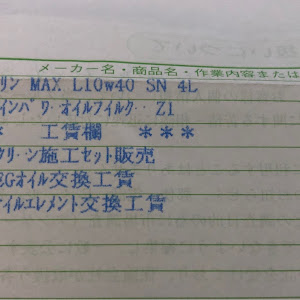 メーカー名・商品名・作業内容または
リン MAX L10w40 SN 4L
インパワ・オイルフィルタ・・Z1
* 工賃欄 ***
クリーン施工セット販売
EGオイル交換工賃
イルエレメント交換工賃